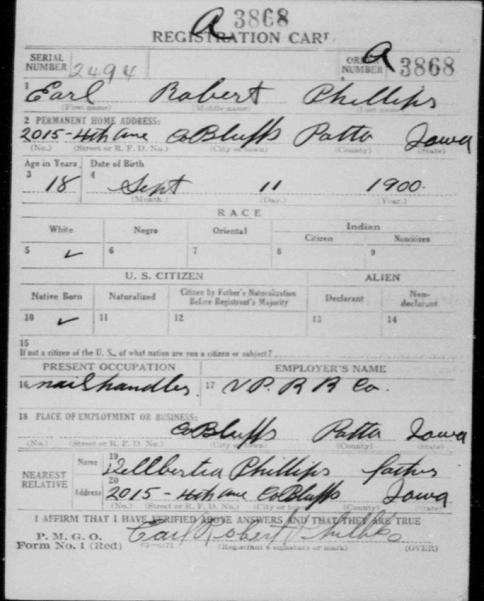 A 3868
REGISTRATION CARD
SERIAL NUMBER 2494 ORDER NUMBER A 3868
1 Earl Robert Phillips
(First name) (Middle name) (Last name)
2 PERMANENT HOME ADDRESS:
2015-4th ave Co Bluffs Potta Iowa
(No.) (Street or R. F. D. No.) (City or town) (County) (State)
Age in Years Date of Birth
3 18 4 Sept 11 1900.
(Month.) (Day.) (Year.)
RACE
White Negro Oriental Indian
Citizen Noncitizen
5 ✓ 6 7 8 9
U. S. CITIZEN ALIEN
Native Born Naturalized Citizen by Father's Naturalization Before Registrant's Majority Declarant Non-declarant
10 ✓ 11 12 13 14
15
If not a citizen of the U. S., of what nation are you a citizen or subject?
PRESENT OCCUPATION EMPLOYER'S NAME
16 mail handler 17 U P. R R Co.
18 PLACE OF EMPLOYMENT OR BUSINESS:
Co Bluffs Potta Iowa
(No.) (Street or R. F. D. No.) (City or town) (County) (State)
NEAREST RELATIVE
Name 19 Phillips father
Address 20 2015-4th ave Co Bluffs Iowa
(No.) (Street or R. F. D. No.) (City or town) (County) (State)
I AFFIRM THAT I HAVE VERIFIED ABOVE ANSWERS AND THAT THEY ARE TRUE
P. M. G. O.
Form No. 1 (Red) Earl Robert Phillips
(Registrant's signature or mark) (OVER)